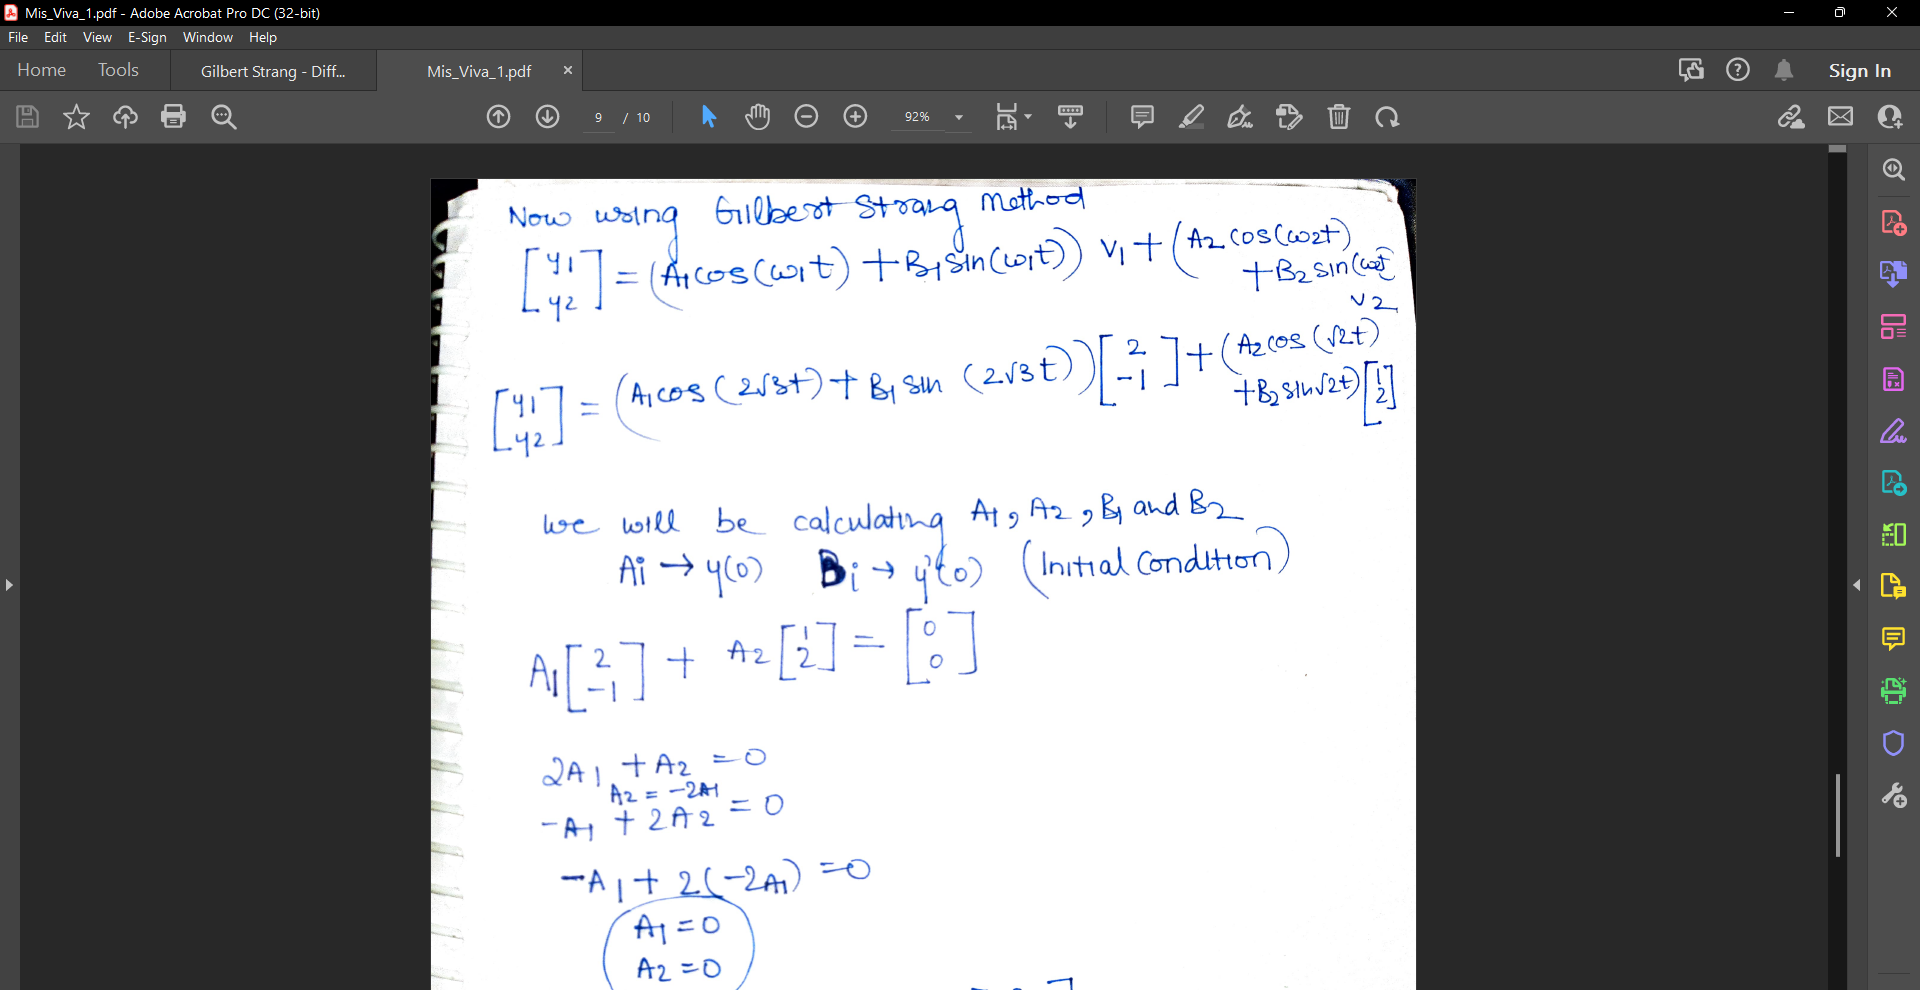 Mis_Viva_1.pdf - Adobe Acrobat Pro DC (32-bit)
File Edit View E-Sign Window Help
Home Tools Gilbert Strang - Diff... Mis_Viva_1.pdf × Sign In
9 / 10 92%
Now using Gilbert Strang Method
[y1 y2] = (A1cos(ω1t) + B1sin(ω1t)) v1 + (A2 cos(ω2t)
+B2 sin(ω2t
v2
[y1 y2] = (A1cos(2√3t) + B1 sin (2√3t)) [2 -1] + (A2cos(√2t)
+B2 sin√2t) [1 2]
we will be calculating A1, A2, B1 and B2
Ai → y(0) Bi → y'(0) (Initial Condition)
A1 [2 -1] + A2 [1 2] = [0 0]
2A1 + A2 = 0
A2 = -2A1
-A1 + 2A2 = 0
-A1 + 2(-2A1) = 0
A1 = 0
A2 = 0